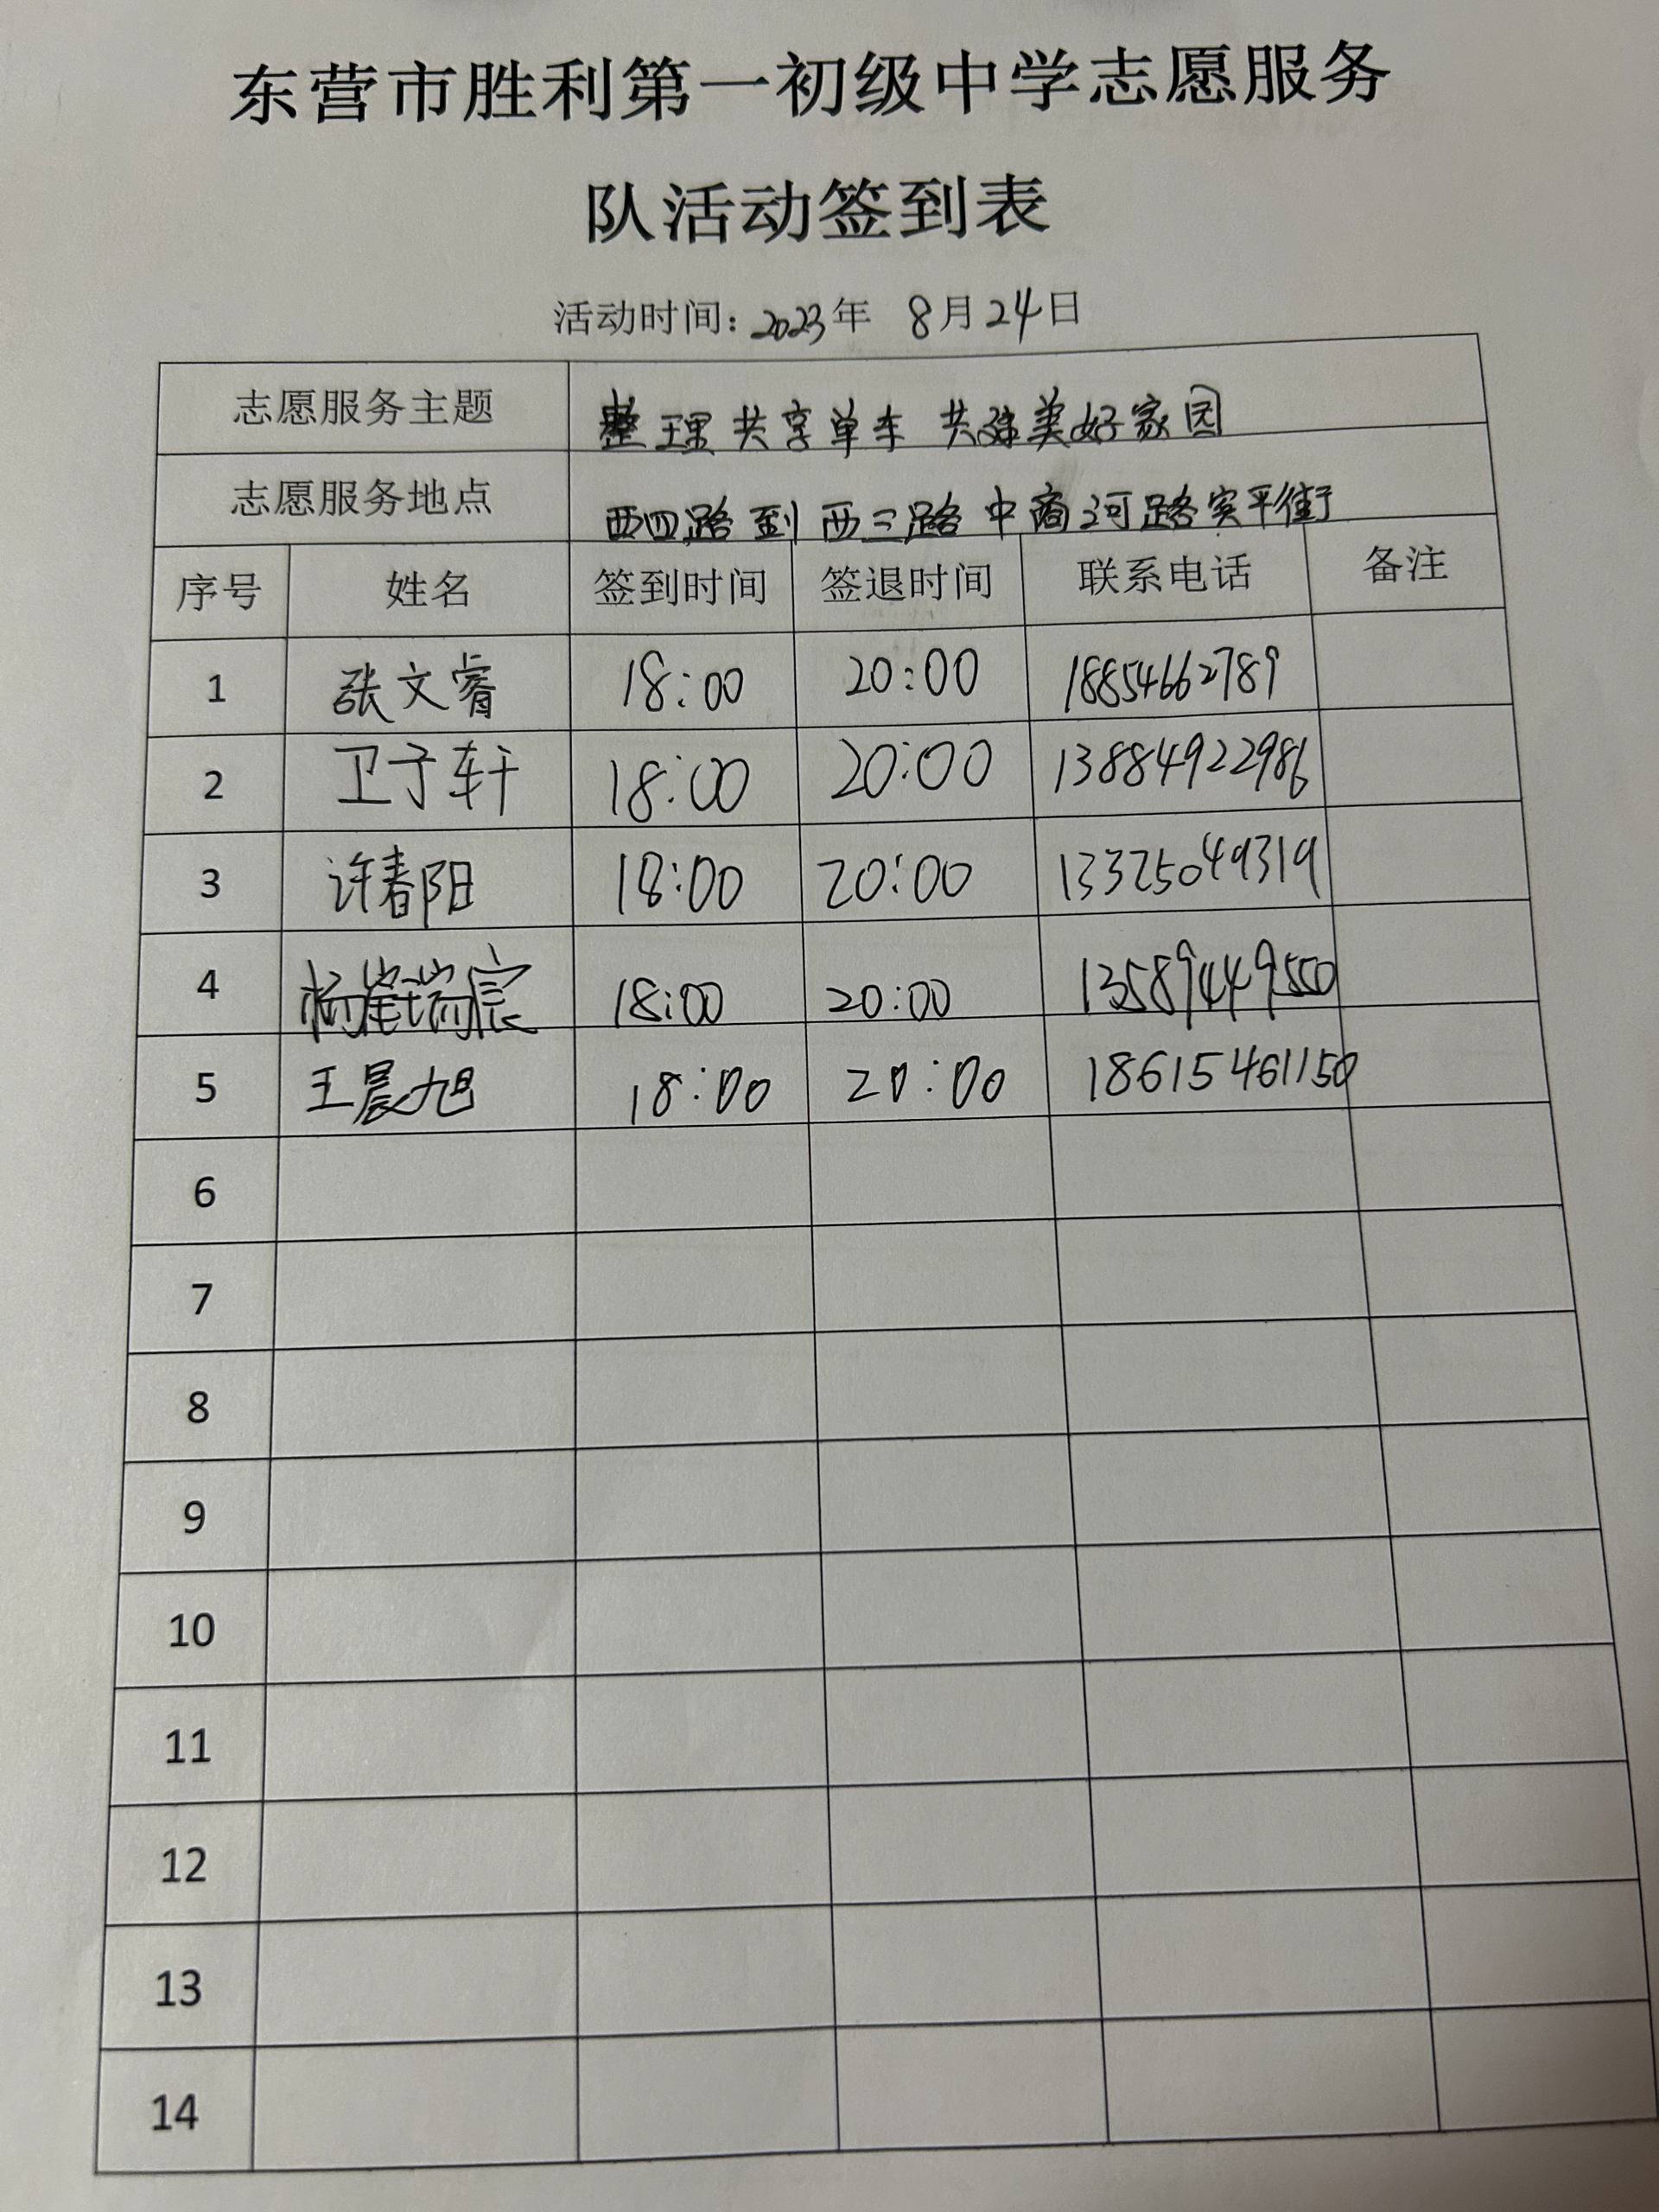 东营市胜利第一初级中学志愿服务
队活动签到表
活动时间：2023年 8月24日
志愿服务主题 整理共享单车 共建美好家园
志愿服务地点 西四路到西三路中商河路实平街
序号 姓名 签到时间 签退时间 联系电话 备注
1 张文睿 18:00 20:00 18854662789
2 卫子轩 18:00 20:00 13884922986
3 许春阳 18:00 20:00 13325049319
4 杨崔瑞宸 18:00 20:00 13589449550
5 王晨旭 18:00 20:00 18615461150
6
7
8
9
10
11
12
13
14